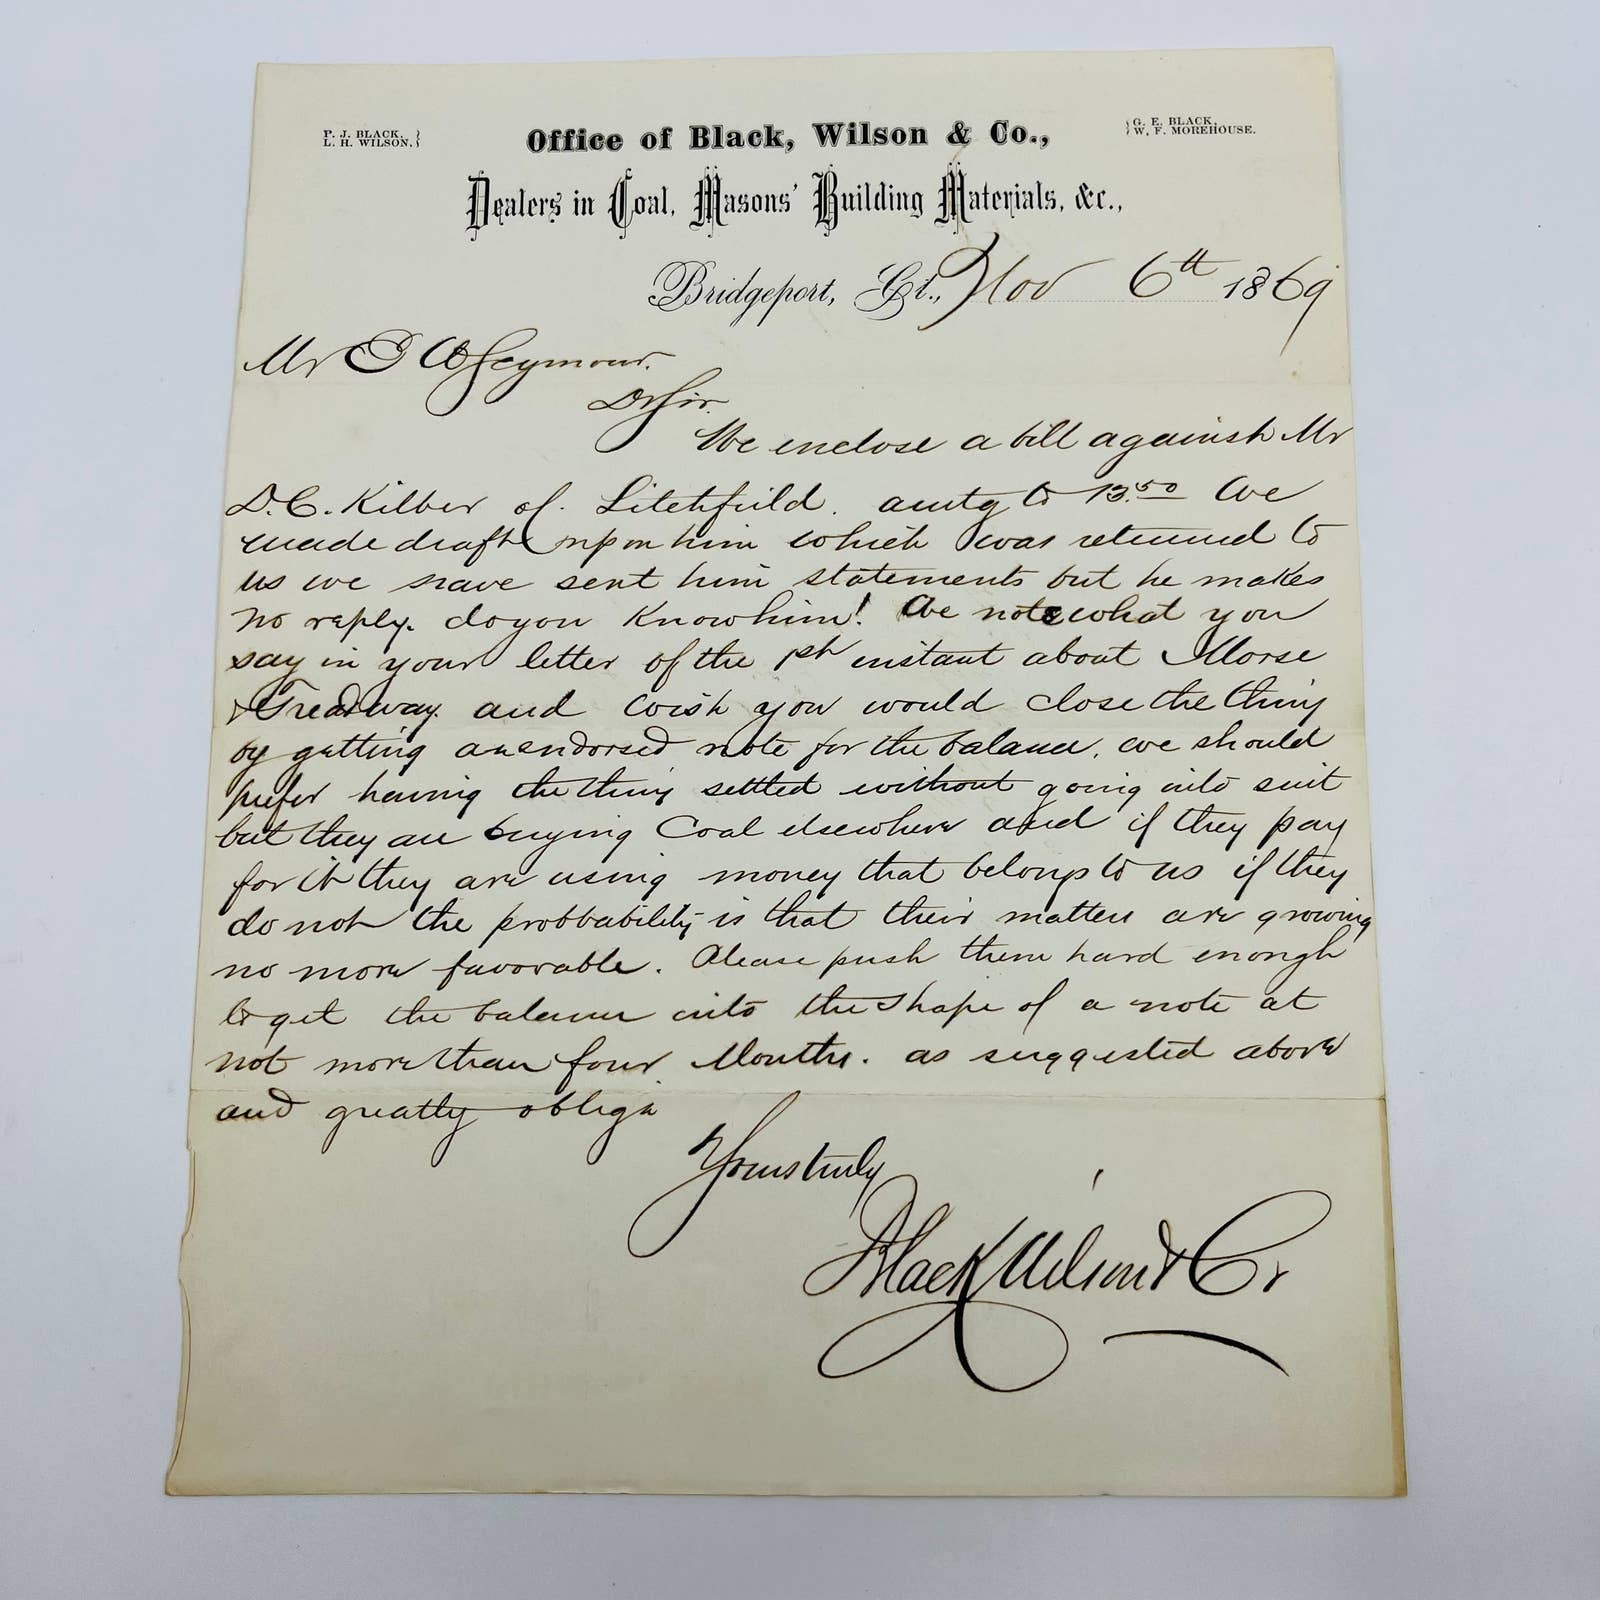 P. J. BLACK.
L. H. WILSON.
Office of Black, Wilson & Co.,
G. E. BLACK.
W. F. MOREHOUSE.
Dealers in Coal, Masons' Building Materials, &c.,
Bridgeport, Ct., Nov 6th 1869
Mr Seymour.
Dr Sir.
We enclose a bill against Mr
D. C. Kilber of Litchfield. amtg to 13.50 We
made draft upon him which was returned to
us we have sent him statements but he makes
no reply. do you know him! We note what you
say in your letter of the 1st instant about Morse
& Treadway. and wish you would close the thing
by getting an endorsed note for the balance. we should
prefer having the thing settled without going into suit
but they are buying Coal elsewhere and if they pay
for it they are using money that belongs to us if they
do not the probbability is that their matters are growing
no more favorable. Please push them hard enough
to get the balance into the shape of a note at
not more than four Months. as suggested above
and greatly oblige
Yours truly
Black Wilson & Co